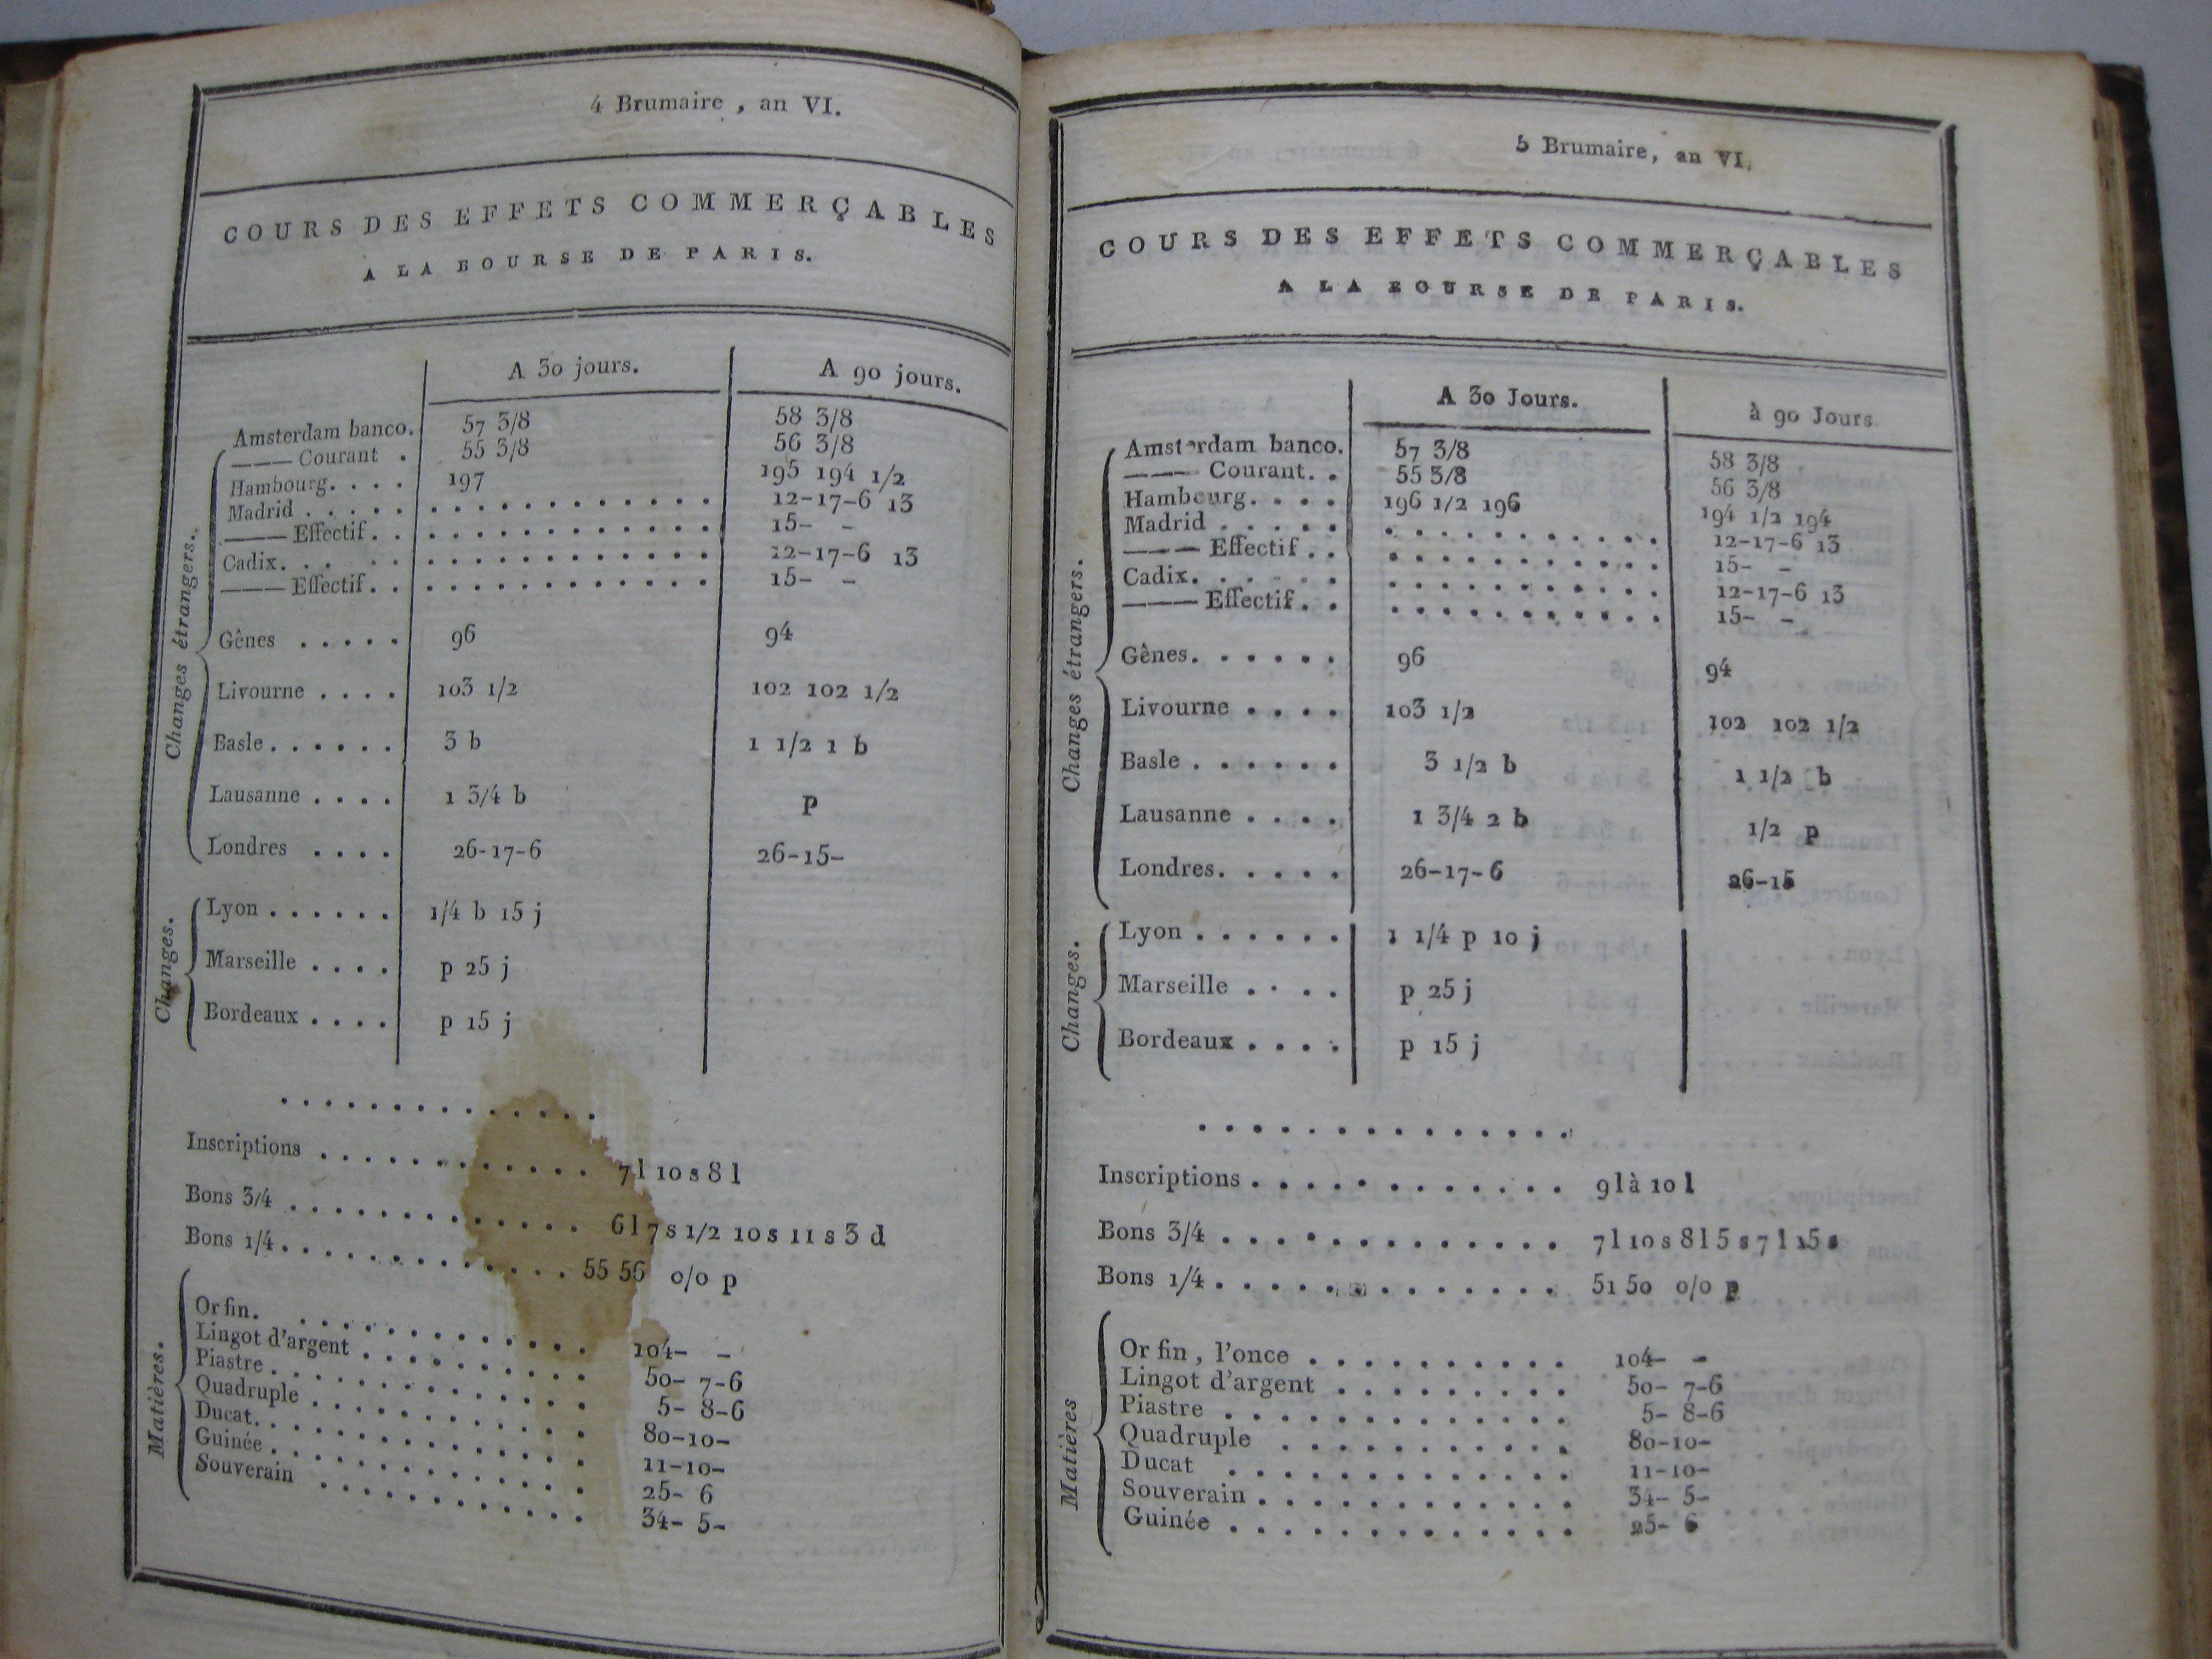 4 Brumaire , an VI.
COURS DES EFFETS COMMERÇABLES
A LA BOURSE DE PARIS.
A 30 jours. A 90 jours.
Changes étrangers.
Amsterdam banco. 57 3/8 58 3/8
——— Courant . 55 3/8 56 3/8
Hambourg. . . . 197 195 194 1/2
Madrid . . . . . . . . . . . . . . . . 12-17-6 13
——— Effectif. . . . . . . . . . . . . 15- -
Cadix. . . . . . . . . . . . . . . . 12-17-6 13
——— Effectif. . . . . . . . . . . . . 15- -
Gênes . . . . . 96 94
Livourne . . . . 103 1/2 102 102 1/2
Basle. . . . . . 3 b 1 1/2 1 b
Lausanne . . . . 1 3/4 b p
Londres . . . . 26-17-6 26-15-
Changes.
Lyon . . . . . . 1/4 b 15 j
Marseille . . . . p 25 j
Bordeaux . . . . p 15 j
. . . . . . . . . . . .
Inscriptions . . . . . . . . . . 7 l 10 s 8 l
Bons 3/4 . . . . . . . . . . . 6 l 7 s 1/2 10 s 11 s 3 d
Bons 1/4. . . . . . . . . . . 55 56 o/o p
Matières.
Or fin. . . . . . . . . . . . 104- -
Lingot d'argent . . . . . . . . 50- 7-6
Piastre . . . . . . . . . . . . 5- 8-6
Quadruple . . . . . . . . . . 80-10-
Ducat. . . . . . . . . . . . . 11-10-
Guinée . . . . . . . . . . . . 25- 6
Souverain . . . . . . . . . . 34- 5-
5 Brumaire, an VI.
COURS DES EFFETS COMMERÇABLES
A LA BOURSE DE PARIS.
A 30 Jours. à 90 Jours
Changes étrangers.
Amsterdam banco. 57 3/8 58 3/8
——— Courant. . 55 3/8 56 3/8
Hambourg. . . . 196 1/2 196 194 1/2 194
Madrid . . . . . . . . . . . . . . . 12-17-6 13
——— Effectif . . . . . . . . . . . . 15- -
Cadix. . . . . . . . . . . . . . . . 12-17-6 13
——— Effectif. . . . . . . . . . . . . 15- -
Gênes. . . . . . 96 94
Livourne . . . . 103 1/2 102 102 1/2
Basle . . . . . . 3 1/2 b 1 1/2 b
Lausanne . . . . 1 3/4 2 b 1/2 p
Londres. . . . . 26-17-6 26-15
Changes.
Lyon . . . . . . 1 1/4 p 10 j
Marseille . . . . p 25 j
Bordeaux . . . . p 15 j
. . . . . . . . . . . . . .
Inscriptions . . . . . . . . . . . . 9 l à 10 l
Bons 3/4 . . . . . . . . . . . . . 7 l 10 s 8 l 5 s 7 l 15 s
Bons 1/4. . . . . . . . . . . . . 51 50 o/o p
Matières
Or fin , l'once . . . . . . . . . . 104- -
Lingot d'argent . . . . . . . . . 50- 7-6
Piastre . . . . . . . . . . . . . 5- 8-6
Quadruple . . . . . . . . . . . 80-10-
Ducat . . . . . . . . . . . . . 11-10-
Souverain . . . . . . . . . . . . 34- 5-
Guinée . . . . . . . . . . . . . 25- 6